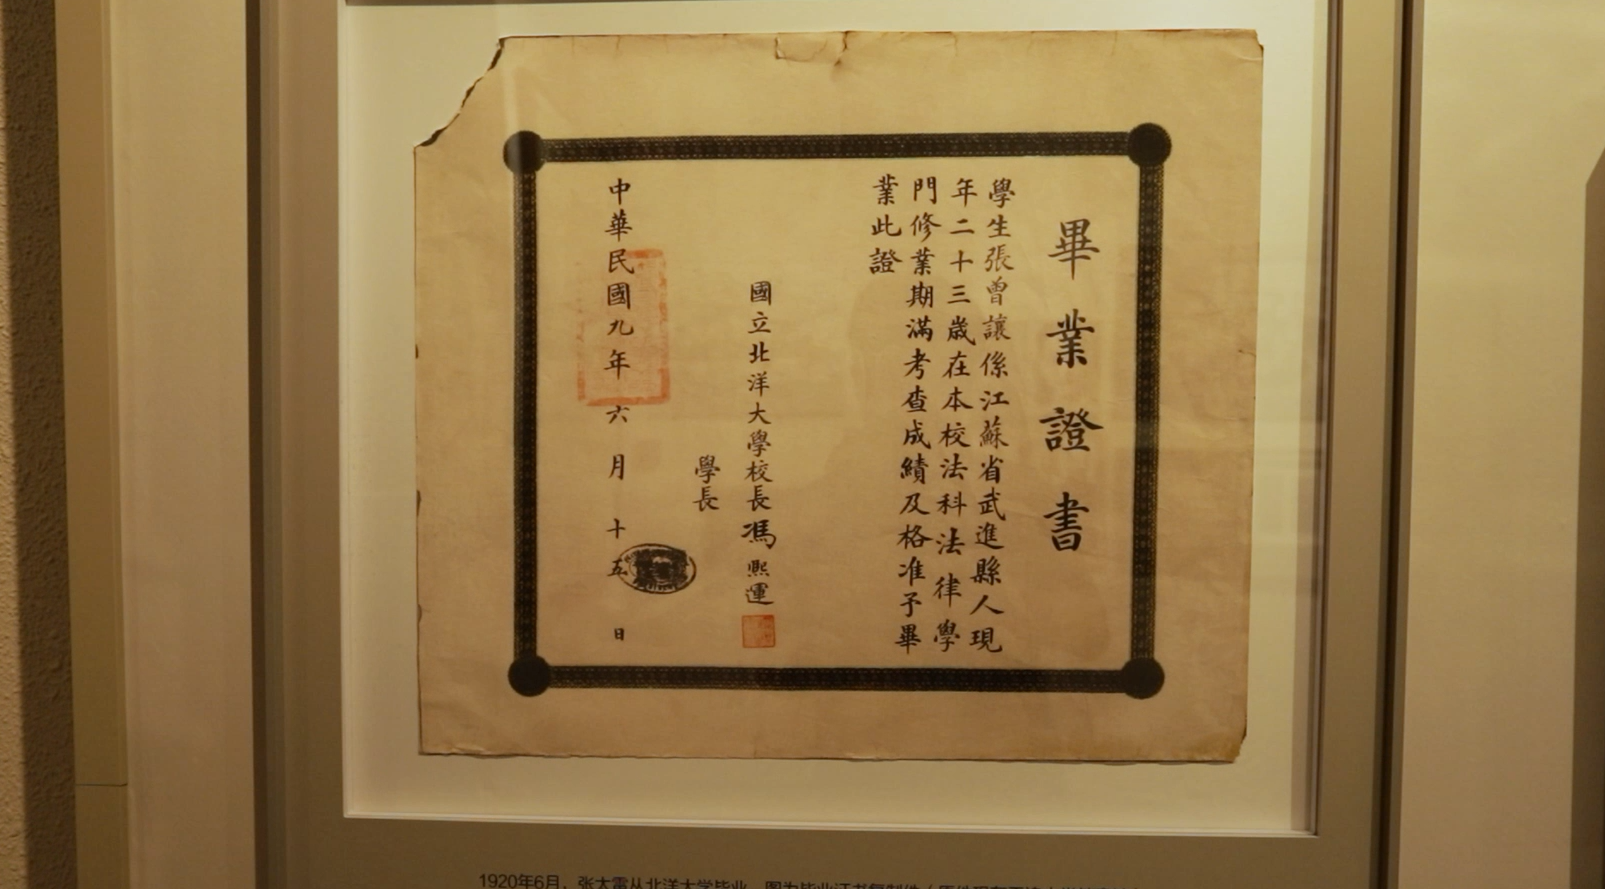 畢業證書
學生張曾讓係江蘇省武進縣人現
年二十三歲在本校法科法律學
門修業期滿考查成績及格准予畢
業此證
國立北洋大學校長馮熙運
學長
中華民國九年六月十五日
1920年6月,张太雷从北洋大学毕业。图为毕业证书复制件(原件现存